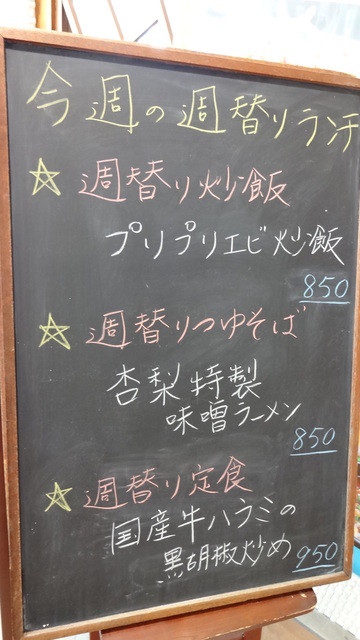 今週の週替りランチ
☆ 週替り炒飯
プリプリエビ炒飯
850
☆ 週替りつゆそば
杏梨特製
味噌ラーメン
850
☆ 週替り定食
国産牛ハラミの
黒胡椒炒め
950